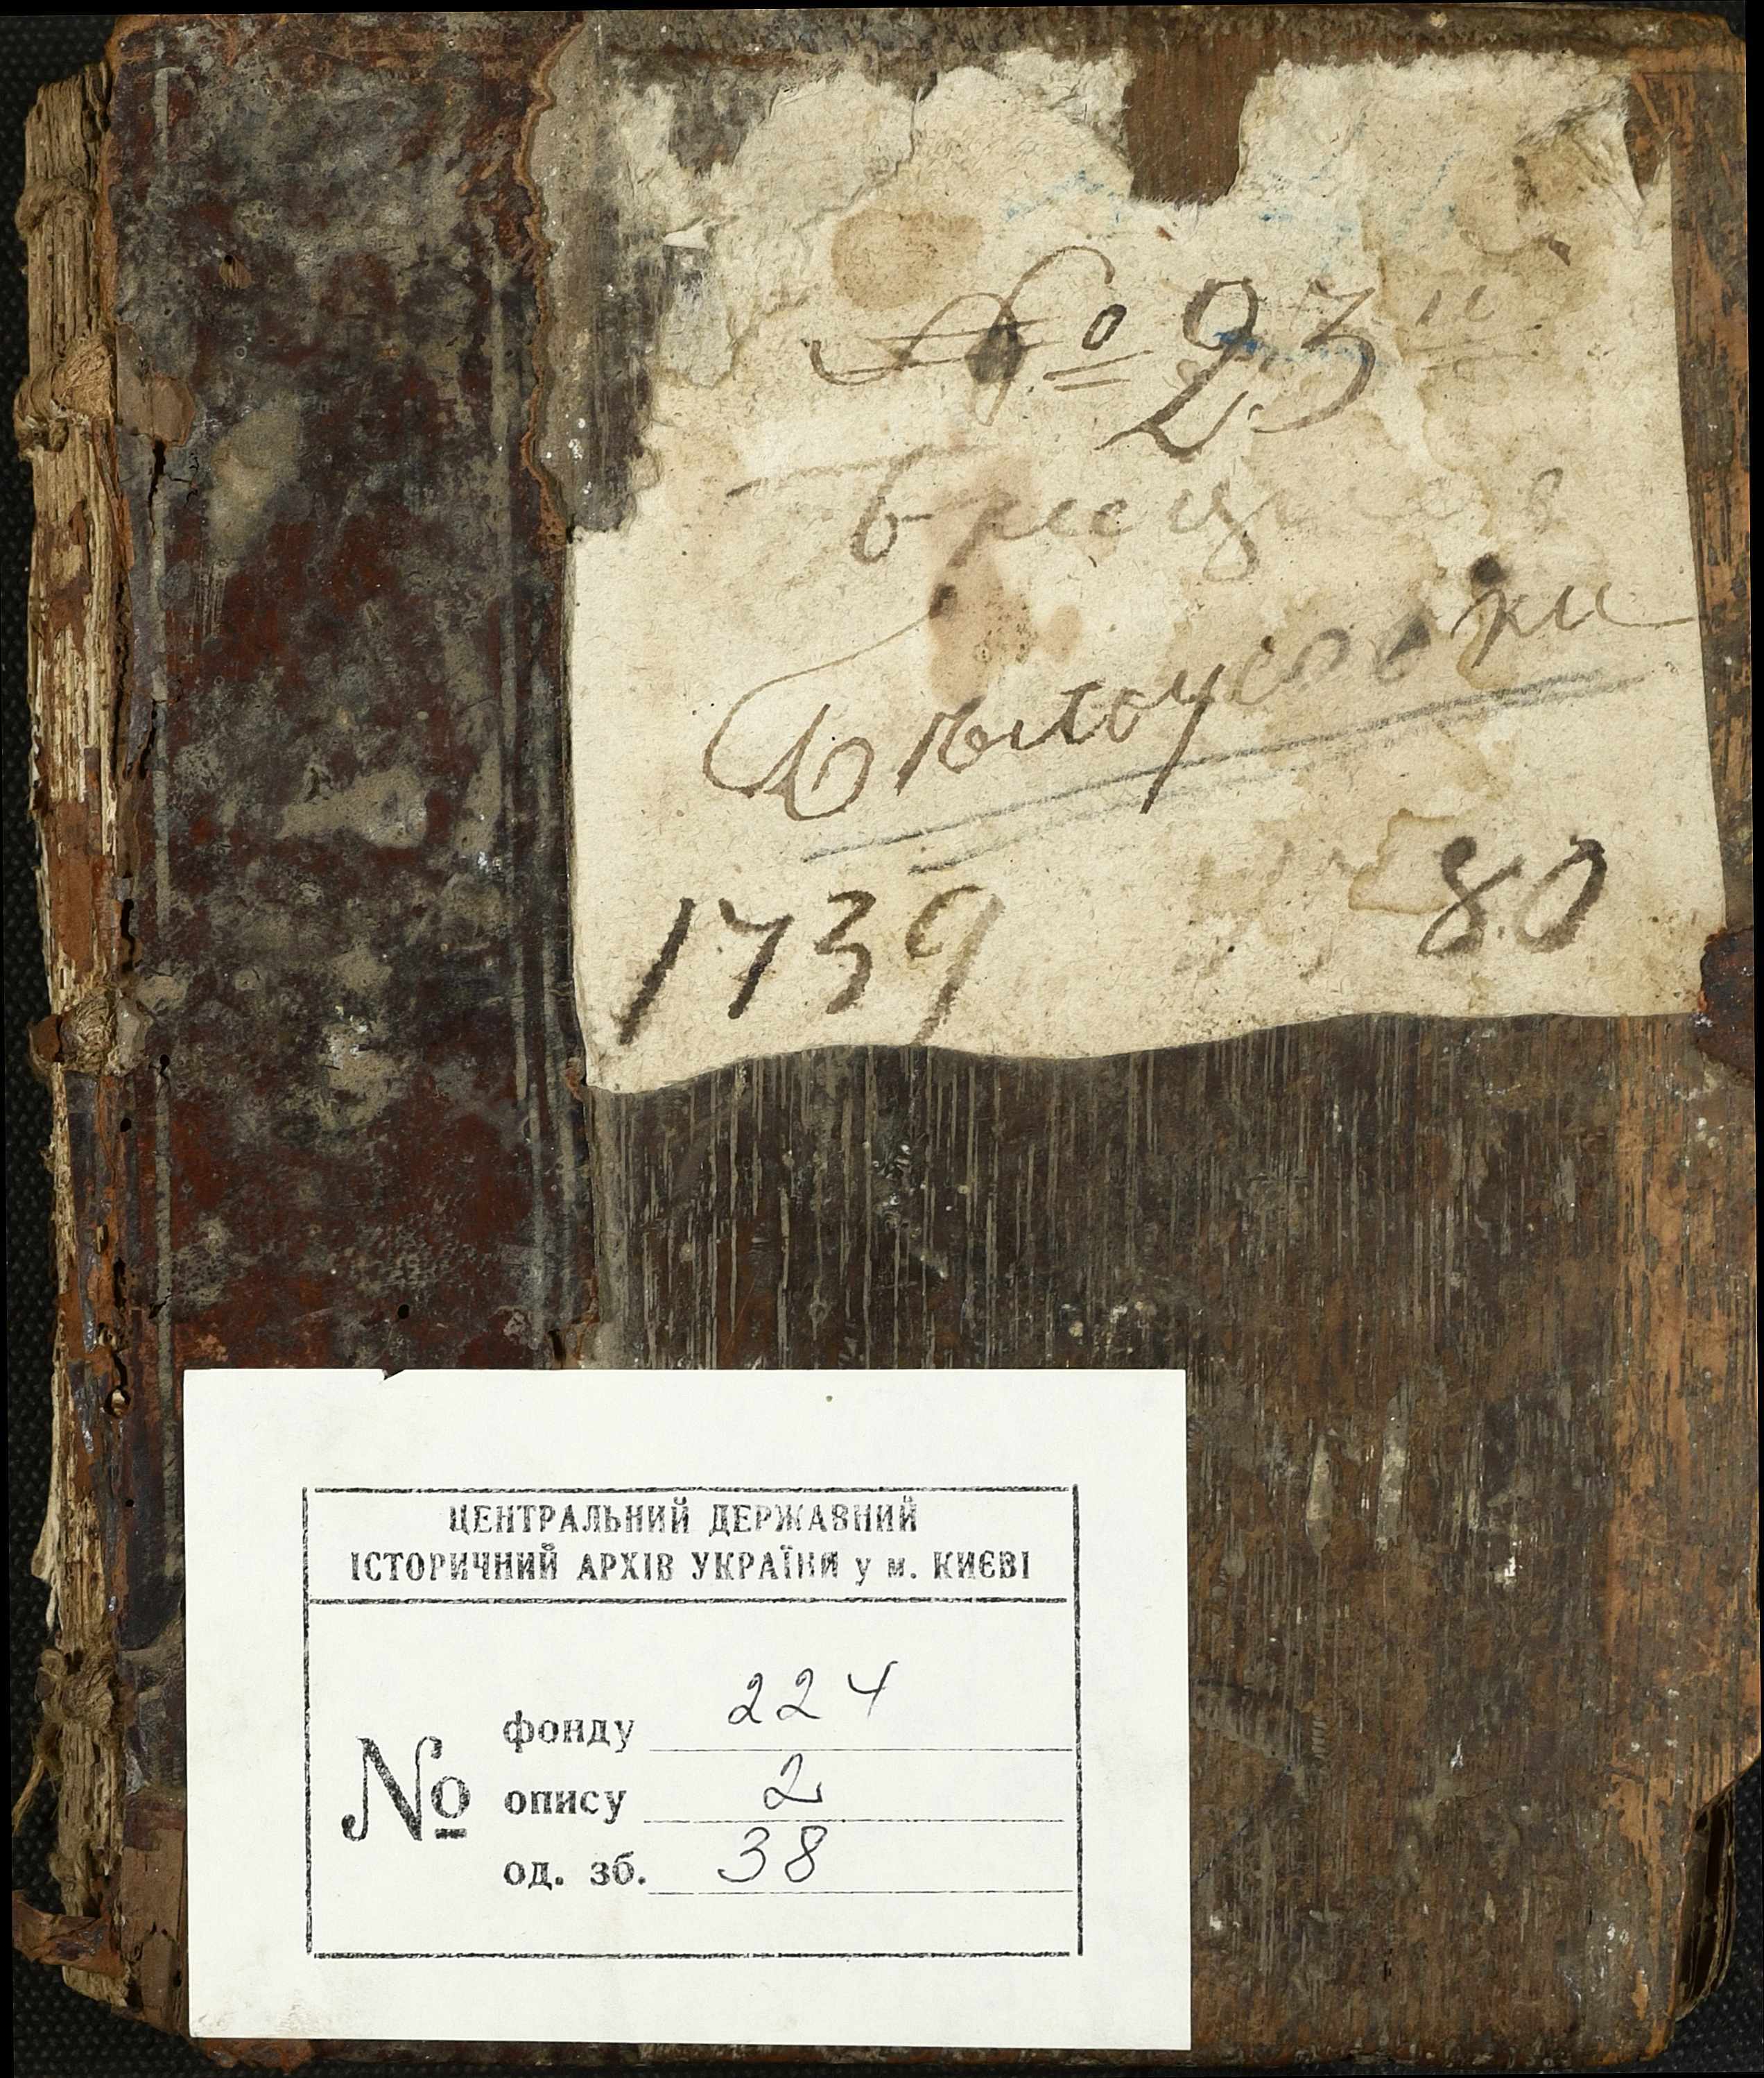 № 23
Бѣлоусовки
1739 80
ЦЕНТРАЛЬНИЙ ДЕРЖАВНИЙ
ІСТОРИЧНИЙ АРХІВ УКРАЇНИ у м. КИЄВІ
№
фонду 224
опису 2
од. зб. 38